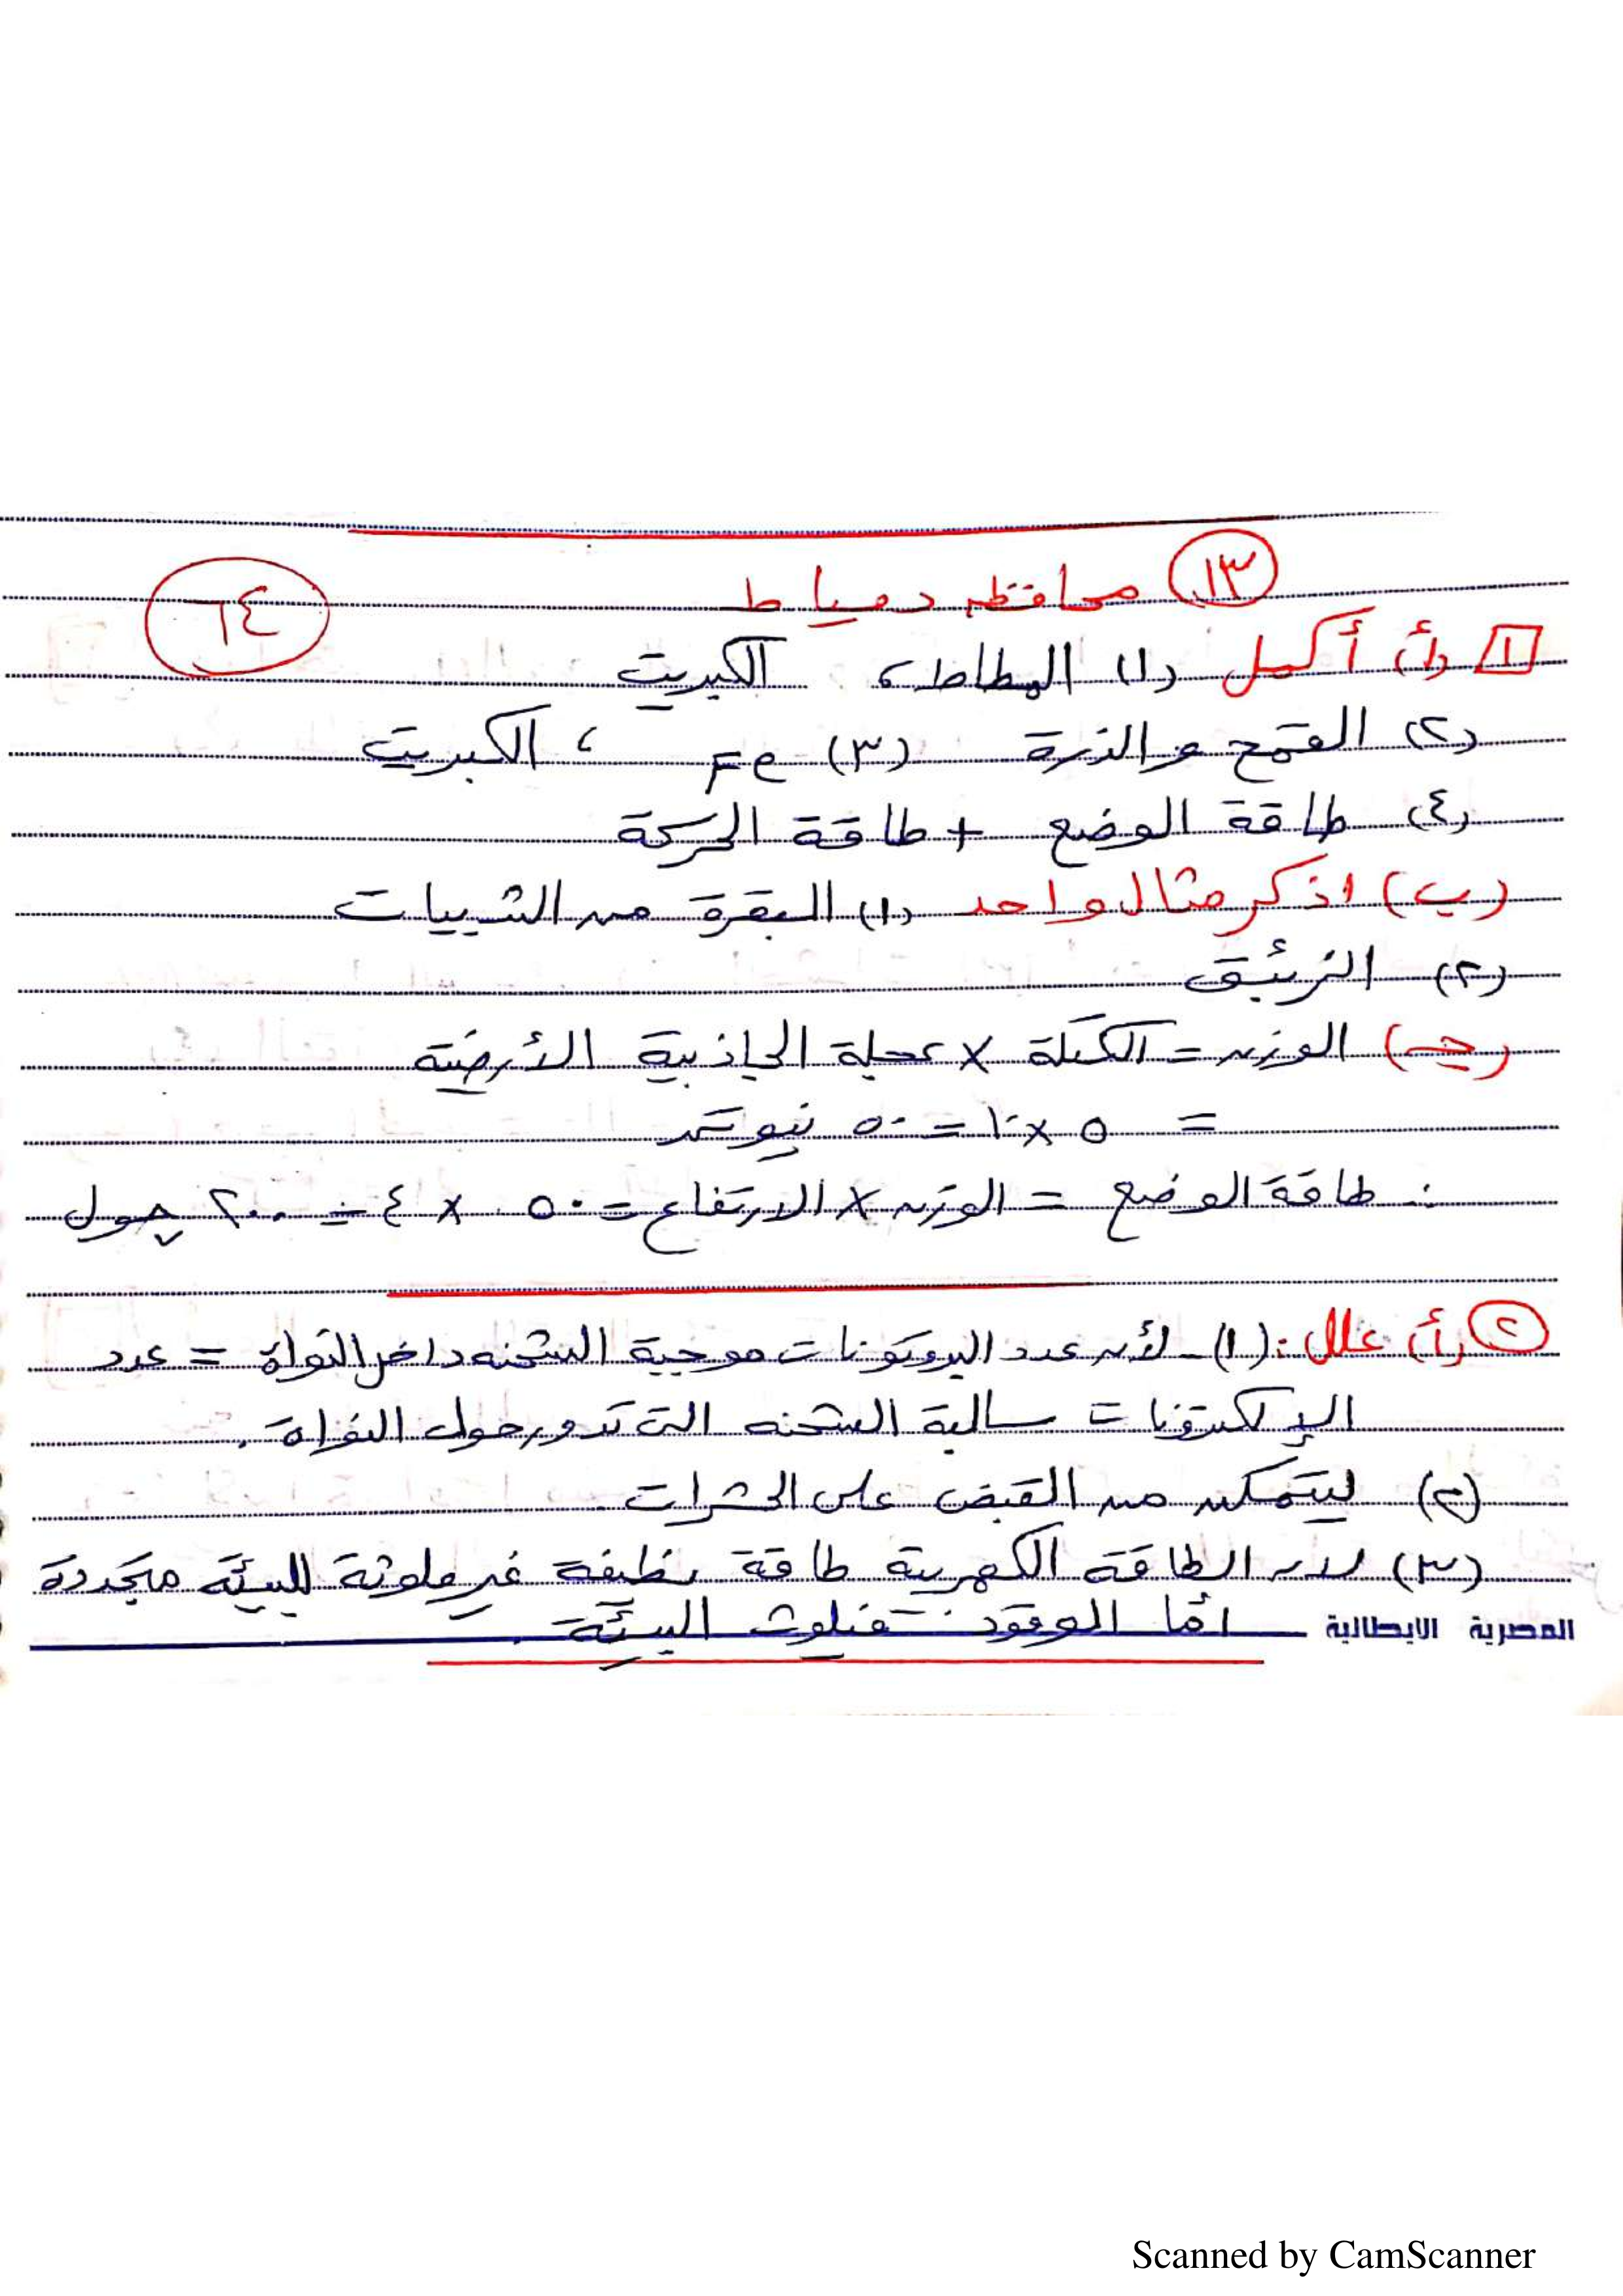 (١٣) محافظة دمياط
٦٤
[١] (أ) أكمل (١) المطاط، الكبريت
(٢) القمح والذرة (٣) Fe ، الكبريت
(٤) طاقة الوضع + طاقة الحركة
(ب) اذكر مثال واحد (١) البقرة من الثدييات
(٢) الزئبق
(جـ) الوزن = الكتلة × عجلة الجاذبية الأرضية
= ٥ × ١٠ = ٥٠ نيوتن
∴ طاقة الوضع = الوزن × الارتفاع = ٥٠ × ٤ = ٢٠٠ جول
(٢) (أ) علل: (١) - لأن عدد البروتونات موجبة الشحنه داخل النواة = عدد
الإلكترونات سالبة الشحنه التى تدور حول النواة.
(٢) ليتمكن من القبض على الحشرات.
(٣) لان الطاقة الكهربية طاقة نظيفة غير ملوثة للبيئة متجددة
أما الوقود فتلوث البيئة.
المصرية الايطالية
Scanned by CamScanner